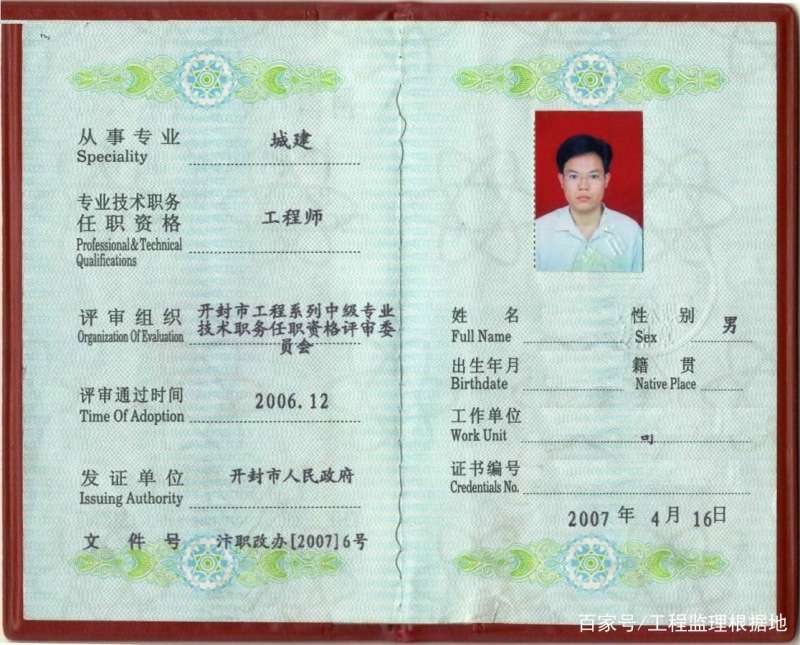 从事专业 城建
Speciality
专业技术职务
任职资格 工程师
Professional&Technical
Qualifications
开封市工程系列中级专业
评审组织 技术职务任职资格评审委
Organization Of Evaluation 员会
评审通过时间 2006.12
Time Of Adoption
发证单位 开封市人民政府
Issuing Authority
文件号 汴职政办[2007]6号
姓名 性别 男
Full Name Sex
出生年月 籍贯
Birthdate Native Place
工作单位
Work Unit
证书编号
Credentials No.
2007年4月16日
百家号/工程监理根据地